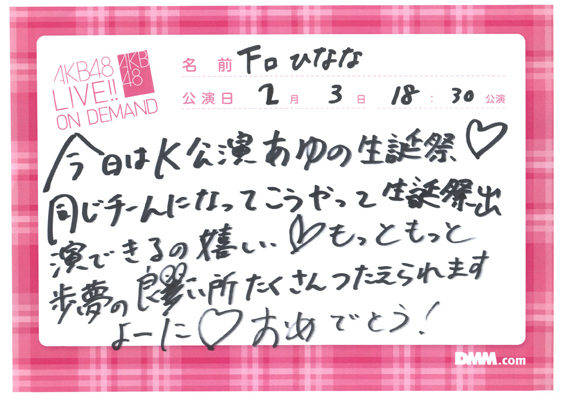 AKB48
LIVE!!
ON DEMAND
AKB
48
名前 下口ひなな
公演日 2月3日 18:30公演
今日はK公演あゆの生誕祭♡
同じチームになってこうやって生誕祭出
演できるの嬉しい♡もっともっと
歩夢の良い所たくさんつたえられます
よーに♡おめでとう!
DMM.com